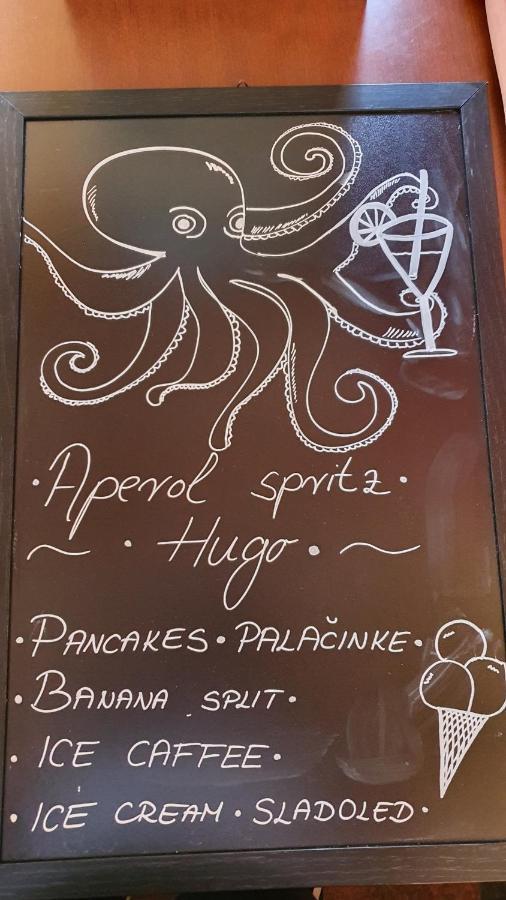 · Aperol spritz ·
~ · Hugo · ~
· PANCAKES · PALAČINKE ·
· BANANA SPLIT ·
· ICE CAFFEE ·
· ICE CREAM · SLADOLED ·